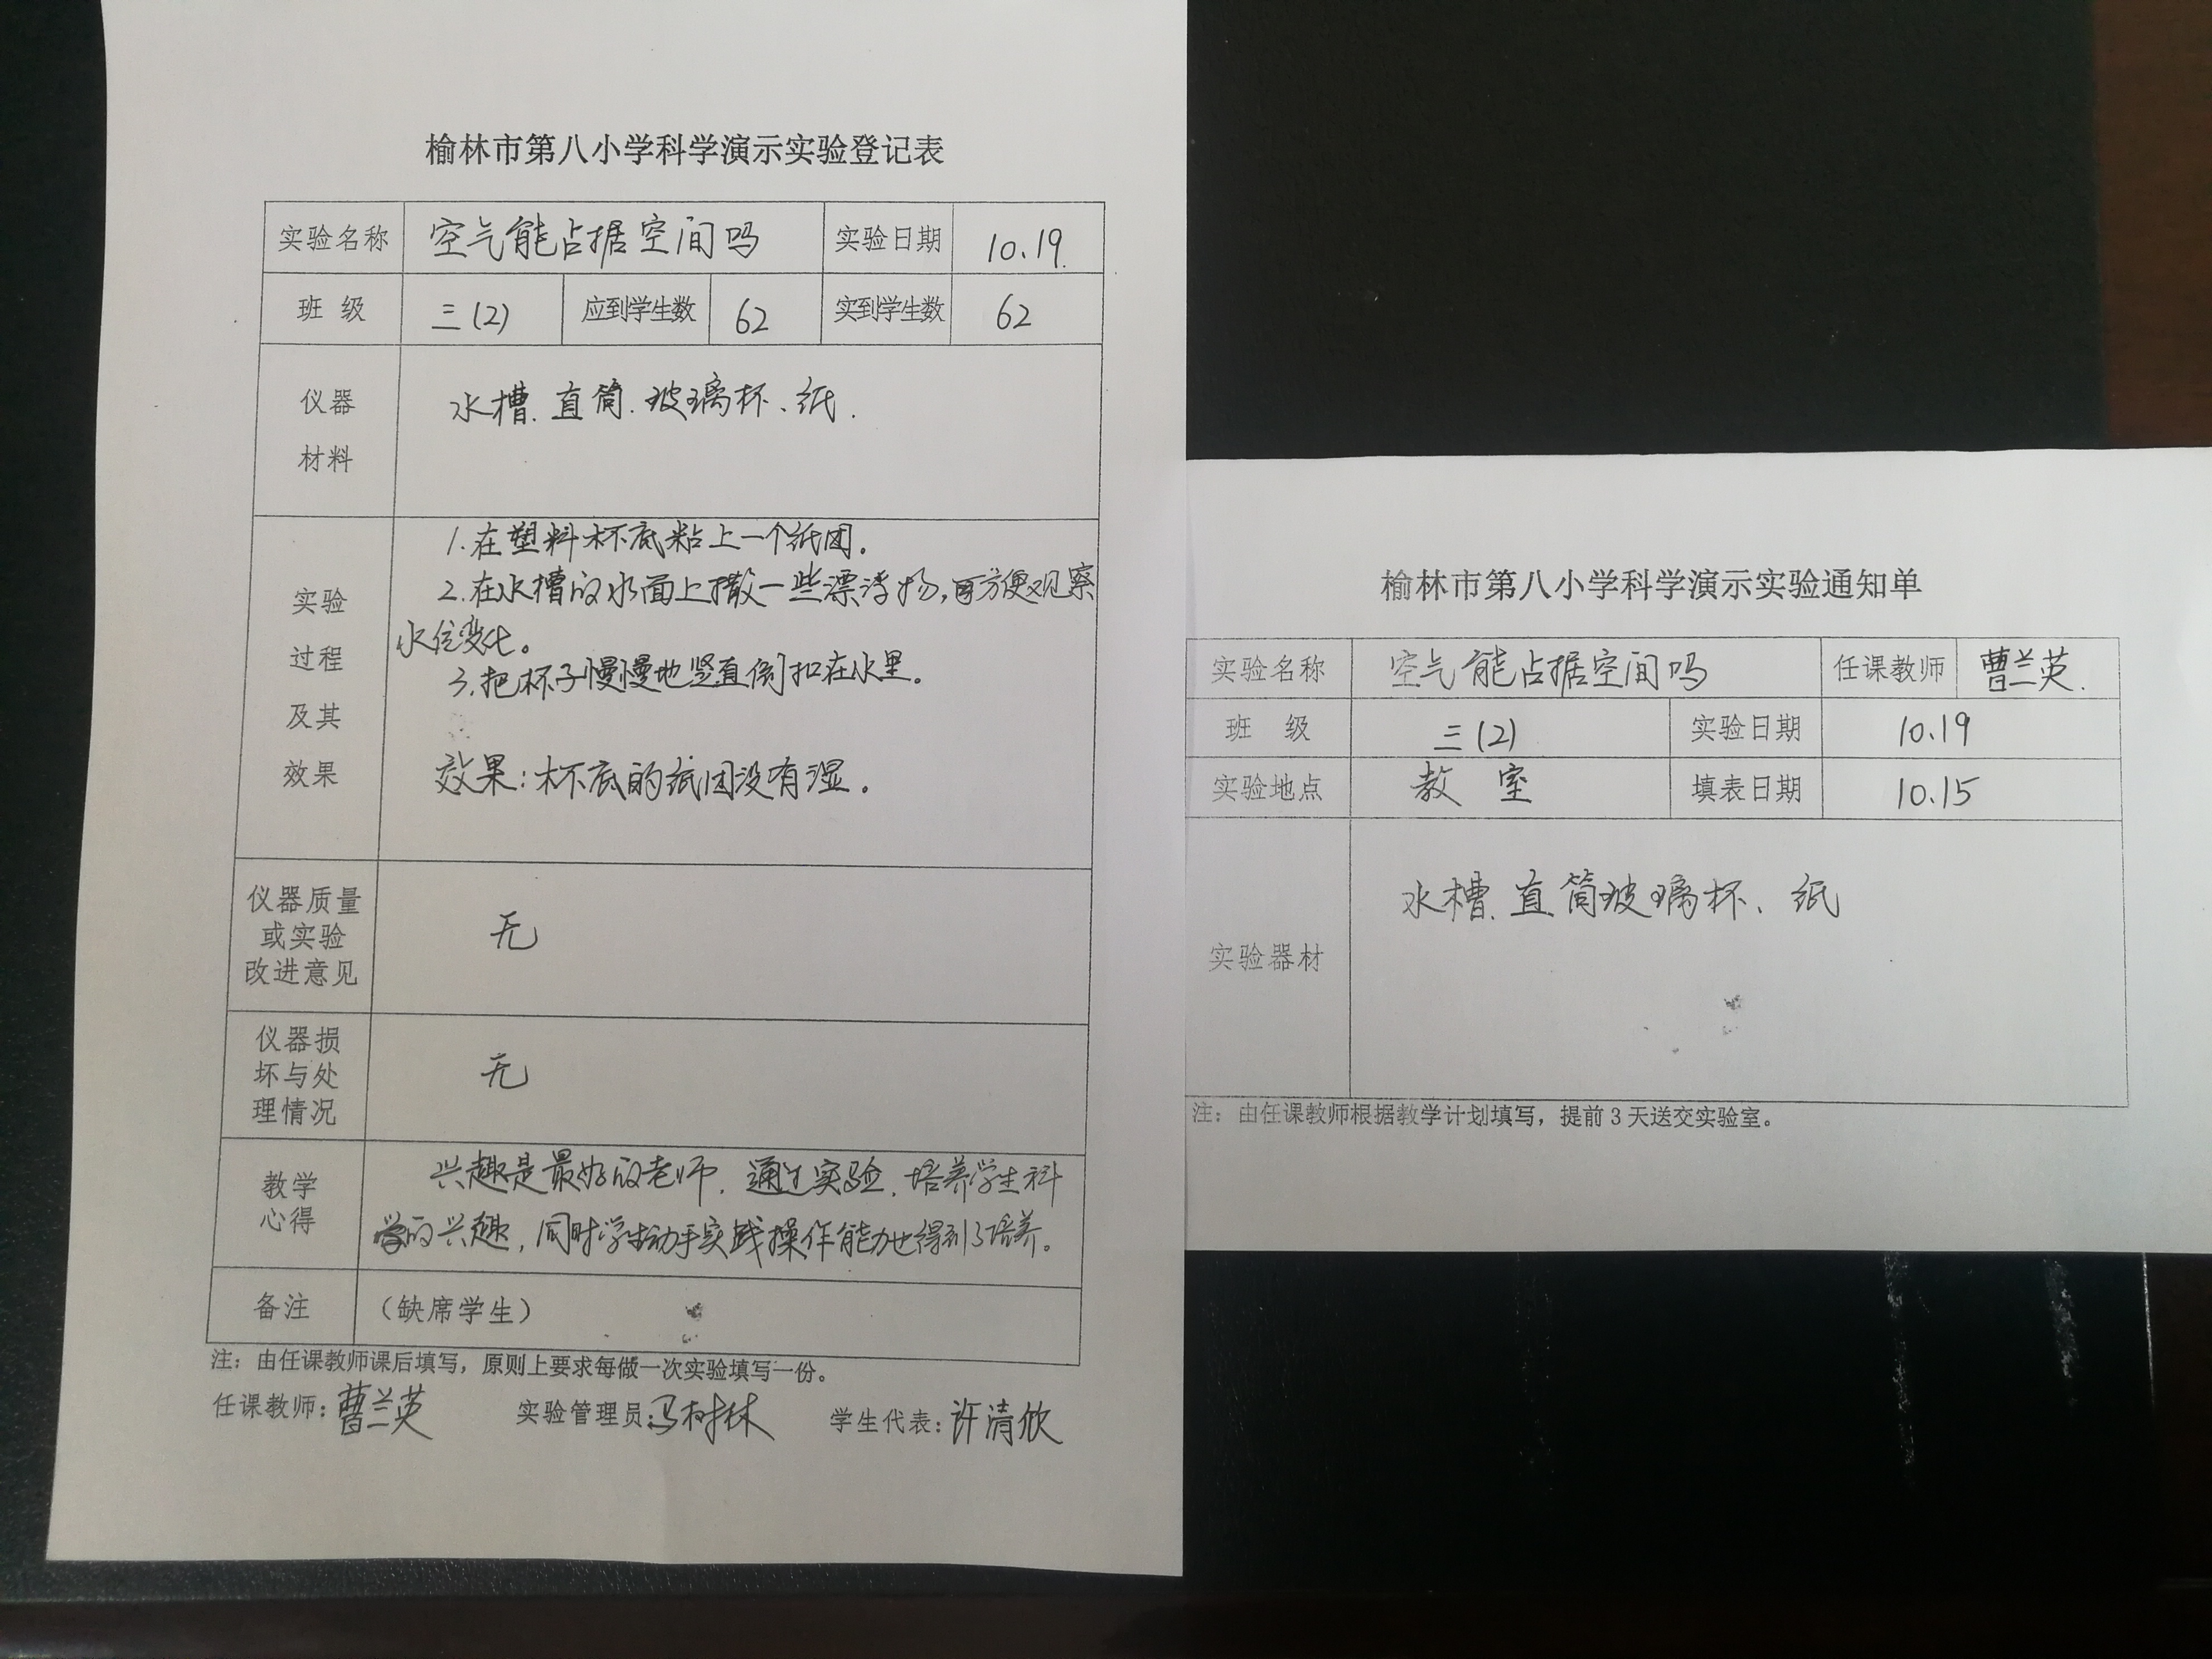 榆林市第八小学科学演示实验登记表
实验名称 空气能占据空间吗 实验日期 10.19.
班 级 三(2) 应到学生数 62 实到学生数 62
仪器
材料
水槽、直筒、玻璃杯、纸.
实验
过程
及其
效果
1.在塑料杯底粘上一个纸团。
2.在水槽的水面上撒一些漂浮物,方便观察
水位变化。
3.把杯子慢慢地竖直倒扣在水里。
效果:杯底的纸团没有湿。
仪器质量
或实验
改进意见
无
仪器损
坏与处
理情况
无
教学
心得
兴趣是最好的老师.通过实验.培养学生科
学的兴趣,同时学生动手实践操作能力也得到了培养。
备注 (缺席学生)
注: 由任课教师课后填写,原则上要求每做一次实验填写一份。
任课教师: 曹兰英 实验管理员: 马树林 学生代表: 许清欣
榆林市第八小学科学演示实验通知单
实验名称 空气能占据空间吗 任课教师 曹兰英.
班 级 三(2) 实验日期 10.19
实验地点 教 室 填表日期 10.15
实验器材 水槽、直筒玻璃杯、纸
注: 由任课教师根据教学计划填写,提前3天送交实验室。